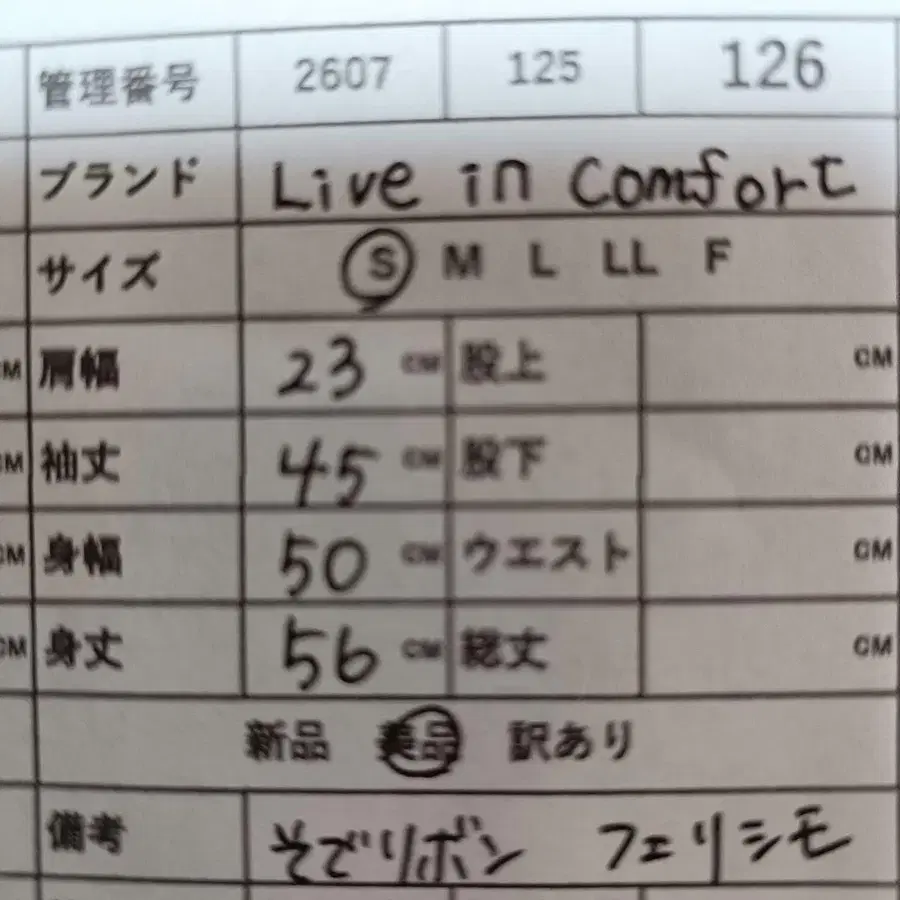 管理番号 2607 125 126
ブランド Live in comfort
サイズ S M L LL F
CM 肩幅 23 CM 股上 CM
CM 袖丈 45 CM 股下 CM
CM 身幅 50 CM ウエスト CM
CM 身丈 56 CM 総丈 CM
新品 美品 訳あり
備考 そでリボン フェリシモ